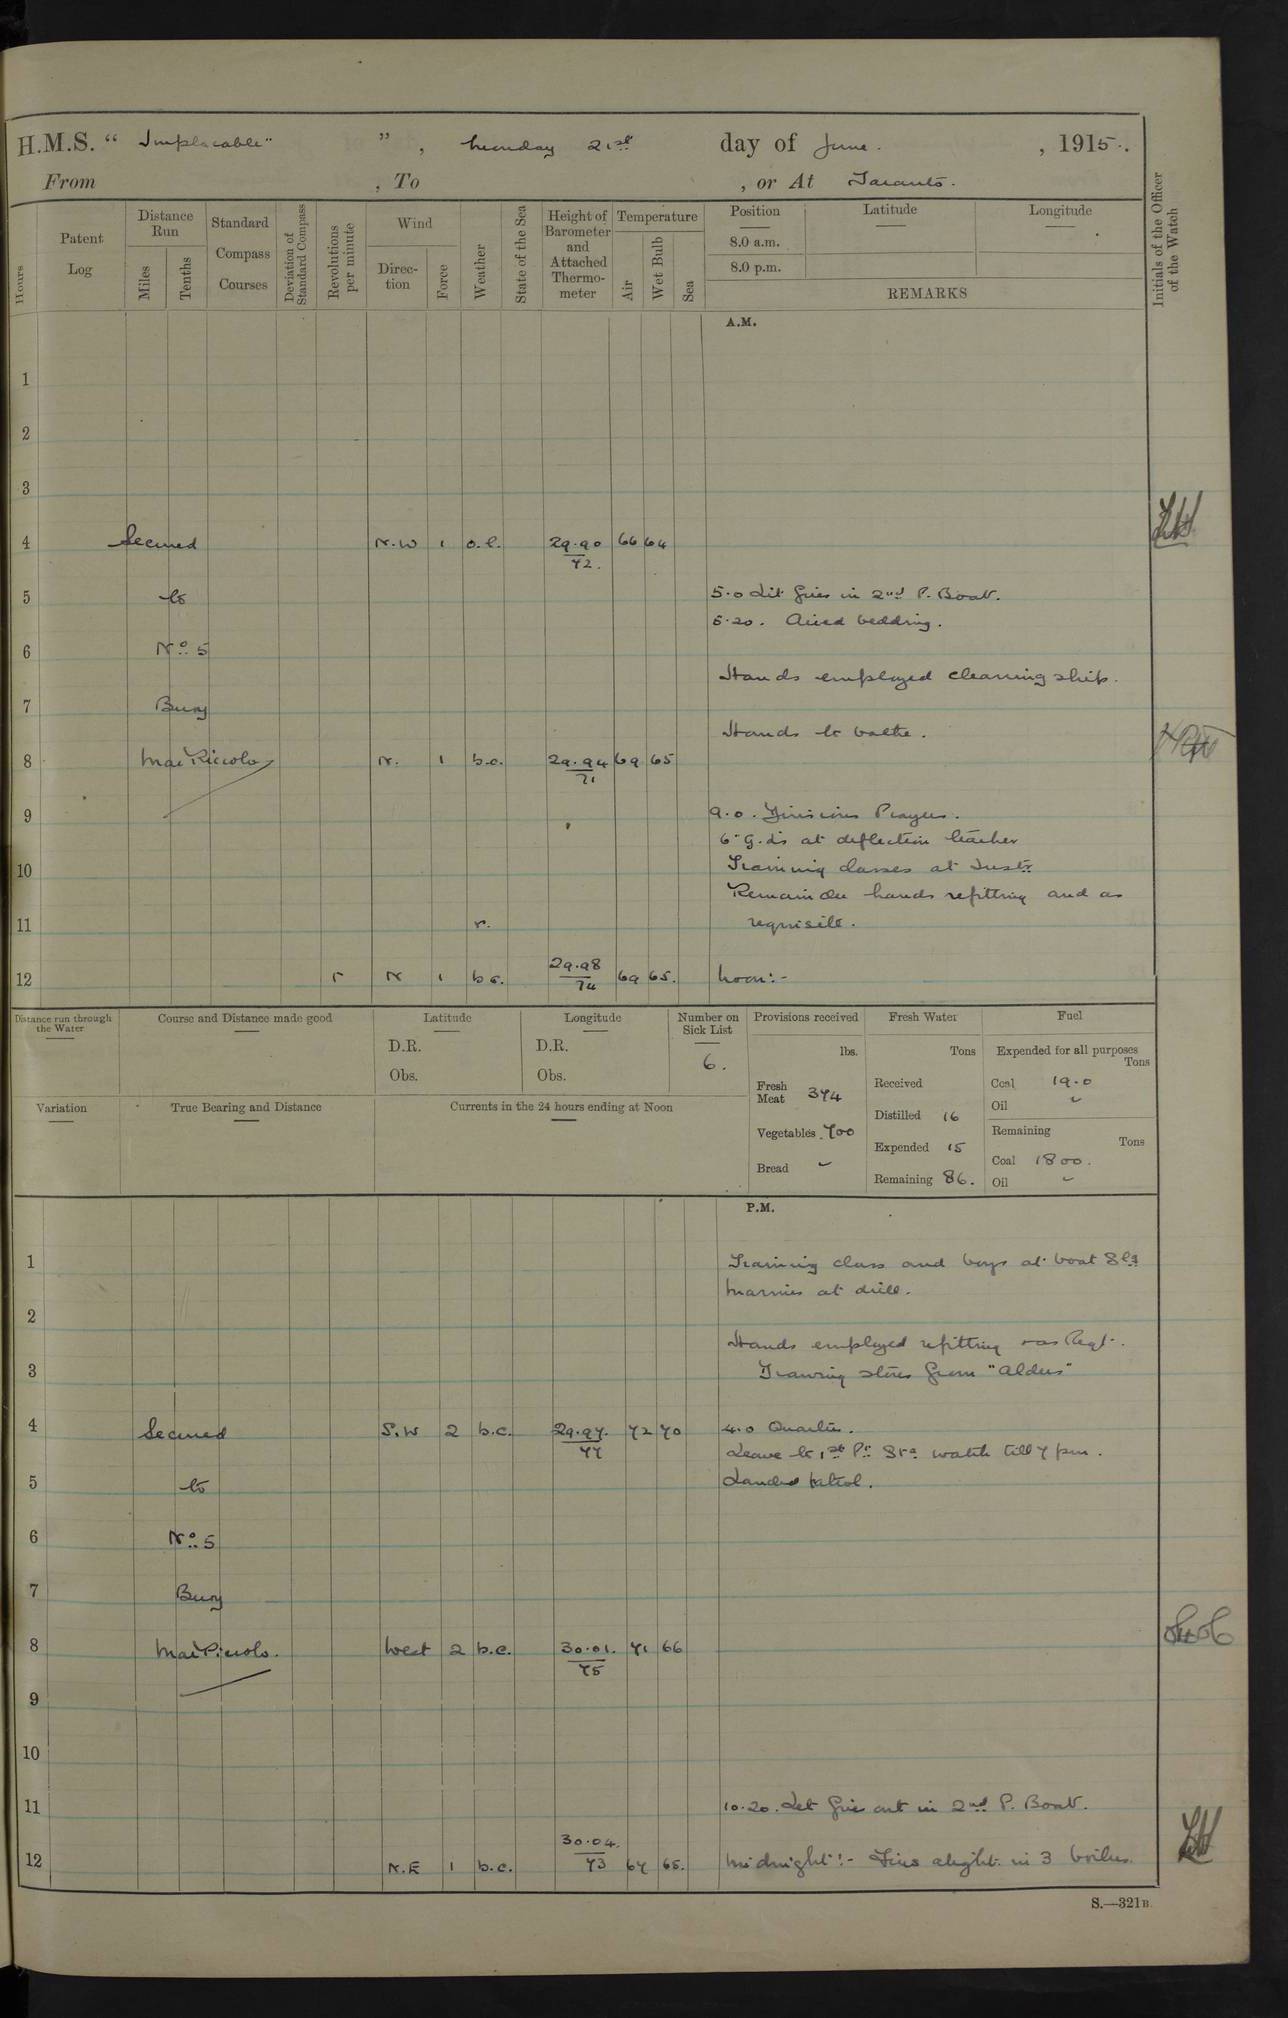 H.M.S. " Implacable " , Monday 21st day of June. , 1915.
From , To , or At Taranto.
Hours
Patent Log
Distance Run
Miles
Tenths
Standard Compass Courses
Deviation of Standard Compass
Revolutions per minute
Wind
Direction
Force
Weather
State of the Sea
Height of Barometer and Attached Thermometer
Temperature
Air
Wet Bulb
Sea
Position
8.0 a.m.
8.0 p.m.
Latitude
Longitude
REMARKS
Initials of the Officer of the Watch
A.M.
1
2
3
4 Secured N.W 1 o.c. 29.90 72. 66 64
5 to 5.0 Lit fires in 2nd P. Boat.
5.20. Aired bedding.
6 No 5
Hands employed cleaning ship.
7 Buoy
Hands to bathe.
8 Mar Piccolo N. 1 b.c. 29.94 71 69 65
9 9.0. Divisions Prayers.
6" G.L's at deflection teacher
10 Training classes at Instn
Remainder hands refitting and as
11 r. requisite.
12 r N 1 b c. 29.98 74 69 65. Noon:-
Distance run through the Water
Course and Distance made good
Latitude
D.R.
Obs.
Longitude
D.R.
Obs.
Number on Sick List
6.
Provisions received
lbs.
Fresh Meat 374
Vegetables 700
Bread ~
Fresh Water
Tons
Received
Distilled 16
Expended 15
Remaining 86.
Fuel
Expended for all purposes
Tons
Coal 19.0
Oil ~
Remaining
Tons
Coal 1800.
Oil ~
Variation
True Bearing and Distance
Currents in the 24 hours ending at Noon
P.M.
1 Training class and boys at boat Slg
Marines at drill.
2
Hands employed refitting & as Reqt.
3 Drawing stores from "Aldus"
4 Secured S.W 2 b.c. 29.97. 77 72 70 4.0 Quarters.
Leave to 1st Pt Sra watch till 7 pm.
5 to Landed patrol.
6 No 5
7 Buoy
8 Mar Piccolo. West 2 b.c. 30.01. 75 71 66
9
10
11 10.20. Let fires out in 2nd P. Boat.
12 N.E 1 b.c. 30.04. 73 67 65. Midnight:- Fires alight in 3 boilers.
S.—321B.